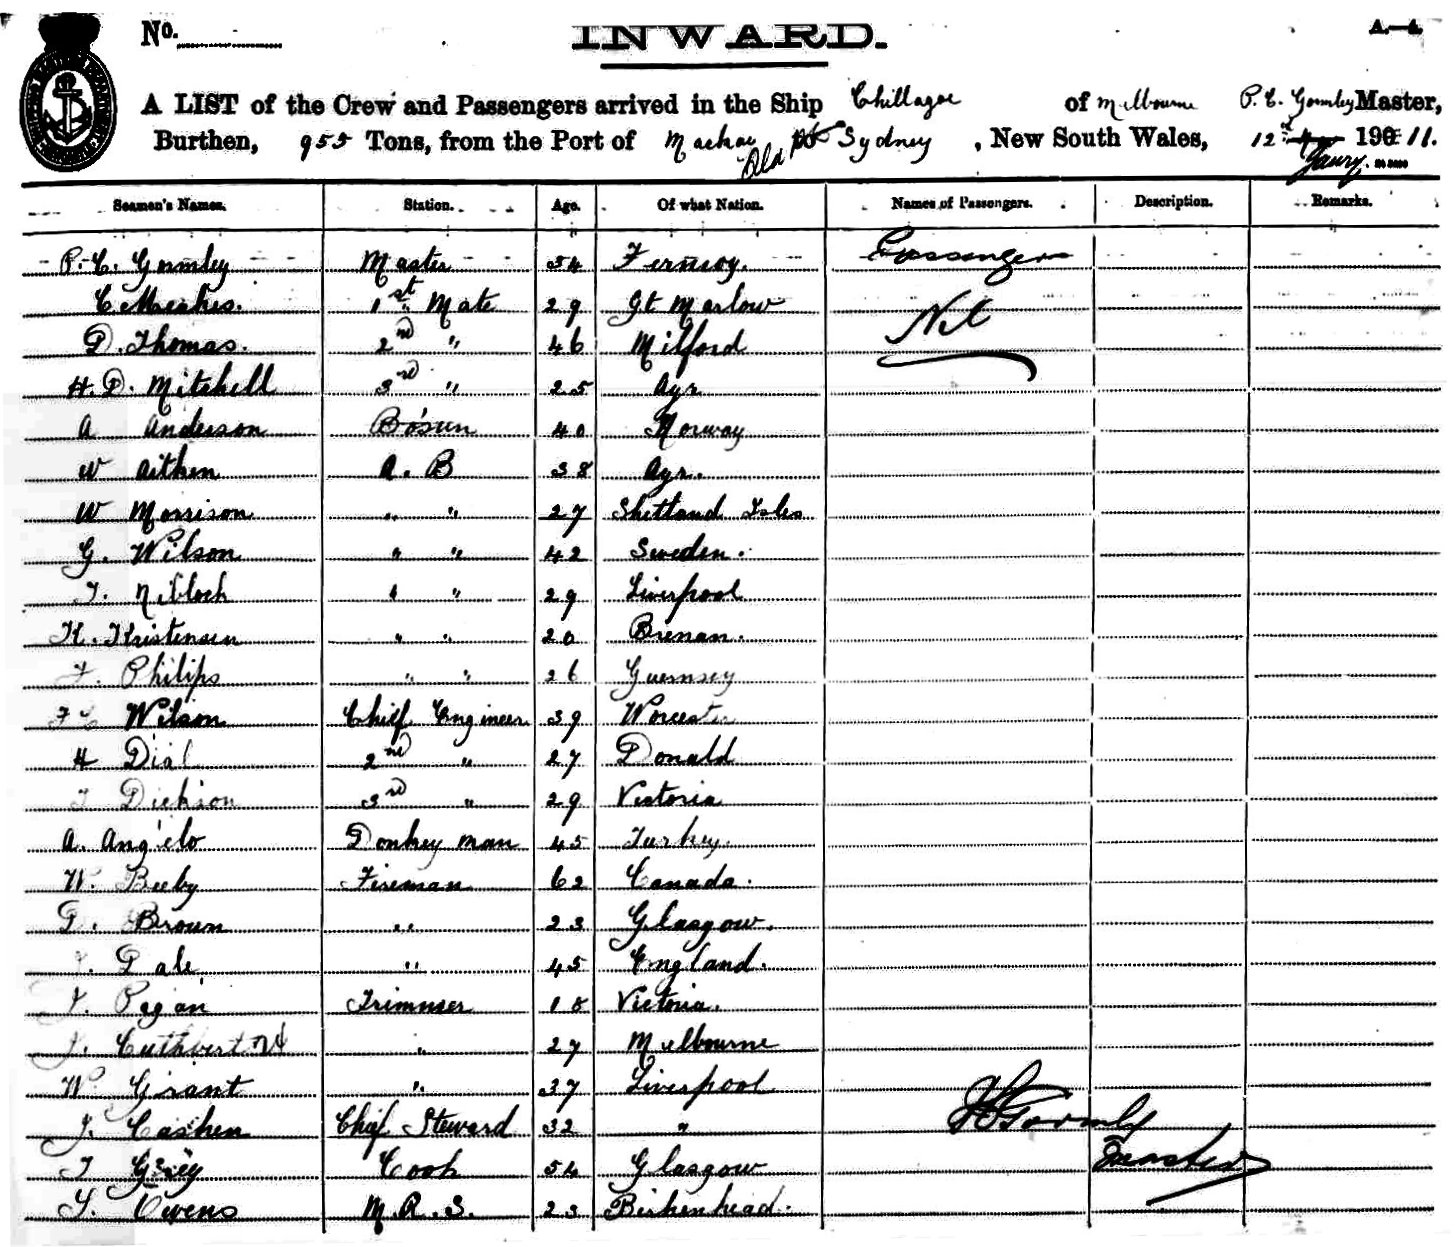 No. INWARD. A.—4.
A LIST of the Crew and Passengers arrived in the Ship Chillagoe of Melbourne P. C. Gormley Master,
Burthen, 955 Tons, from the Port of Mackay Qld to Sydney, New South Wales, 12th Jany. 1911.
Seamen's Names. Station. Age. Of what Nation. Names of Passengers. Description. Remarks.
P. C. Gormley Master 54 Fermoy. Passengers
C Meakes. 1st Mate 29 Gt Marlow Nil
D. Thomas. 2nd " 46 Milford
H. D. Mitchell 3rd " 25 Ayr
A Anderson Bosun 40 Norway
W Aitken A. B 38 Ayr.
W Morrison " " 27 Shetland Isles
G. Wilson " " 42 Sweden.
J. Nibloch " " 29 Liverpool
K. Kristensen " " 20 Brenan.
F. Philips " " 26 Guernsey
Wilson Chief Engineer 39 Worcester
H Dial 2nd " 27 Donald
Dickson 3rd " 29 Victoria
A. Angelo Donkey man 45 Turkey.
W. Beeby Fireman 62 Canada.
D. Brown " 23 Glasgow.
Dale " 45 England.
Pegan Trimmer 18 Victoria.
J. Cuthbert " 27 Melbourne
W Grant " 37 Liverpool
J. Cashen Chief Steward 32 " P C Gormly
J Grey Cook 54 Glasgow Master
Owens M. R. S. 23 Birkenhead.